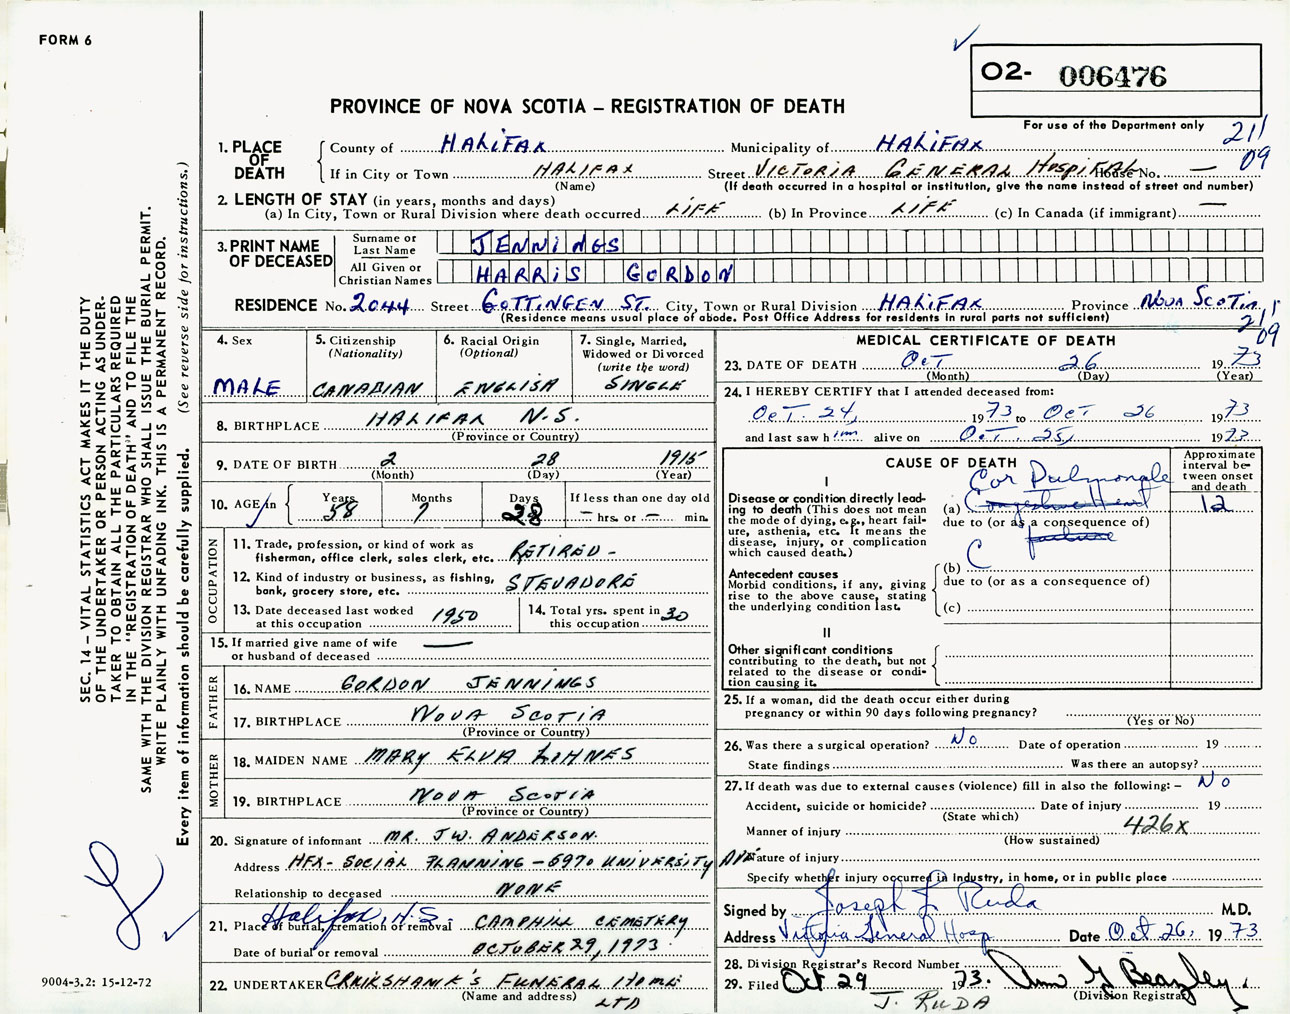 FORM 6
O2- 006476
PROVINCE OF NOVA SCOTIA – REGISTRATION OF DEATH
For use of the Department only
211
09
1. PLACE OF DEATH
County of HALIFAX Municipality of HALIFAX
If in City or Town HALIFAX Street VICTORIA GENERAL HOSPITAL House No. —
(Name) (If death occurred in a hospital or institution, give the name instead of street and number)
2. LENGTH OF STAY (in years, months and days)
(a) In City, Town or Rural Division where death occurred LIFE (b) In Province LIFE (c) In Canada (if immigrant) —
3. PRINT NAME OF DECEASED
Surname or Last Name JENNINGS
All Given or Christian Names HARRIS GORDON
RESIDENCE No. 2044 Street GOTTINGEN ST. City, Town or Rural Division HALIFAX Province NOVA SCOTIA
(Residence means usual place of abode. Post Office Address for residents in rural parts not sufficient)
211
09
4. Sex
MALE
5. Citizenship (Nationality)
CANADIAN
6. Racial Origin (Optional)
ENGLISH
7. Single, Married, Widowed or Divorced (write the word)
SINGLE
8. BIRTHPLACE HALIFAX N.S.
(Province or Country)
9. DATE OF BIRTH 2 28 1915
(Month) (Day) (Year)
10. AGE in Years 58 Months 7 Days 28 If less than one day old
— hrs. or — min.
OCCUPATION
11. Trade, profession, or kind of work as fisherman, office clerk, sales clerk, etc. RETIRED -
12. Kind of industry or business, as fishing, bank, grocery store, etc. STEVADORE
13. Date deceased last worked at this occupation 1950
14. Total yrs. spent in this occupation 30
15. If married give name of wife or husband of deceased —
FATHER
16. NAME GORDON JENNINGS
17. BIRTHPLACE NOVA SCOTIA
(Province or Country)
MOTHER
18. MAIDEN NAME MARY ELVA LOHNES
19. BIRTHPLACE NOVA SCOTIA
(Province or Country)
20. Signature of informant MR. J.W. ANDERSON.
Address HFX- SOCIAL PLANNING - 5970 UNIVERSITY AVE
Relationship to deceased NONE
Halifax, N.S.
21. Place of burial, cremation or removal CAMPHILL CEMETERY
Date of burial or removal OCTOBER 29, 1973
22. UNDERTAKER CRUIKSHANK'S FUNERAL HOME
(Name and address) LTD
MEDICAL CERTIFICATE OF DEATH
23. DATE OF DEATH OCT 26 1973
(Month) (Day) (Year)
24. I HEREBY CERTIFY that I attended deceased from:
OCT. 24, 1973 to OCT 26 1973
and last saw him alive on OCT. 25, 1973
CAUSE OF DEATH
Approximate interval between onset and death
I
Disease or condition directly leading to death (This does not mean the mode of dying, e.g., heart failure, asthenia, etc. It means the disease, injury, or complication which caused death.)
Cor Pulmonale
(a) Congestive Heart failure 12
due to (or as a consequence of)
Antecedent causes
Morbid conditions, if any, giving rise to the above cause, stating the underlying condition last.
(b) C
due to (or as a consequence of)
(c)
II
Other significant conditions
contributing to the death, but not related to the disease or condition causing it.
25. If a woman, did the death occur either during pregnancy or within 90 days following pregnancy?
(Yes or No)
26. Was there a surgical operation? No Date of operation 19
State findings Was there an autopsy?
27. If death was due to external causes (violence) fill in also the following: – No
Accident, suicide or homicide? Date of injury 19
(State which)
Manner of injury 426X
(How sustained)
Nature of injury
Specify whether injury occurred in Industry, in home, or in public place
Signed by Joseph F. Ruda M.D.
Address Victoria General Hosp Date Oct 26, 1973
28. Division Registrar's Record Number
29. Filed Oct 29 1973.
(Division Registrar)
J. RUDA
SEC. 14 – VITAL STATISTICS ACT MAKES IT THE DUTY
OF THE UNDERTAKER OR PERSON ACTING AS UNDER-
TAKER TO OBTAIN ALL THE PARTICULARS REQUIRED
IN THE "REGISTRATION OF DEATH" AND TO FILE THE
SAME WITH THE DIVISION REGISTRAR WHO SHALL ISSUE THE BURIAL PERMIT.
WRITE PLAINLY WITH UNFADING INK. THIS IS A PERMANENT RECORD.
Every item of information should be carefully supplied. (See reverse side for instructions.)
9004-3.2: 15-12-72